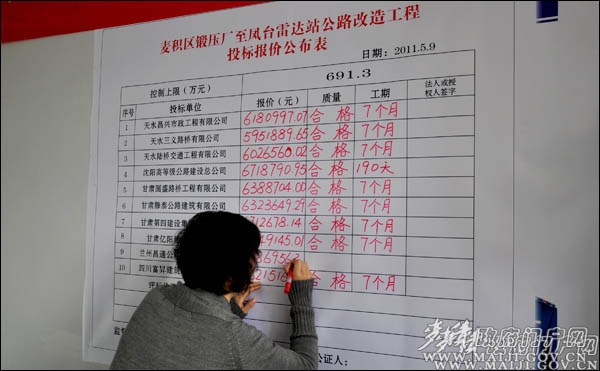 麦积区锻压厂至凤台雷达站公路改造工程
投标报价公布表
日期：2011.5.9
控制上限（万元） 691.3 法人或授权人签字
序号 投标单位 报价（元） 质量 工期
1 天水昌兴市政工程有限公司 6180997.07 合格 7个月
2 天水三义路桥有限公司 5951889.65 合格 7个月
3 天水陆桥交通工程有限公司 6026560.02 合格 7个月
4 沈阳高等级公路建设总公司 6718790.95 合格 190天
5 甘肃圆盛路桥工程有限公司 6388704.00 合格 7个月
6 甘肃滕泰公路建筑有限公司 6323649.29 合格 7个月
7 甘肃第四建设集 712678.14 合格 7个月
8 甘肃亿阳 49145.01 合格 7个月
9 兰州昌通公 6956
10 四川富昇建筑 2151 合格 7个月
评标
监
公证人：
政府门户网
WWW.MAIJI.GOV.CN